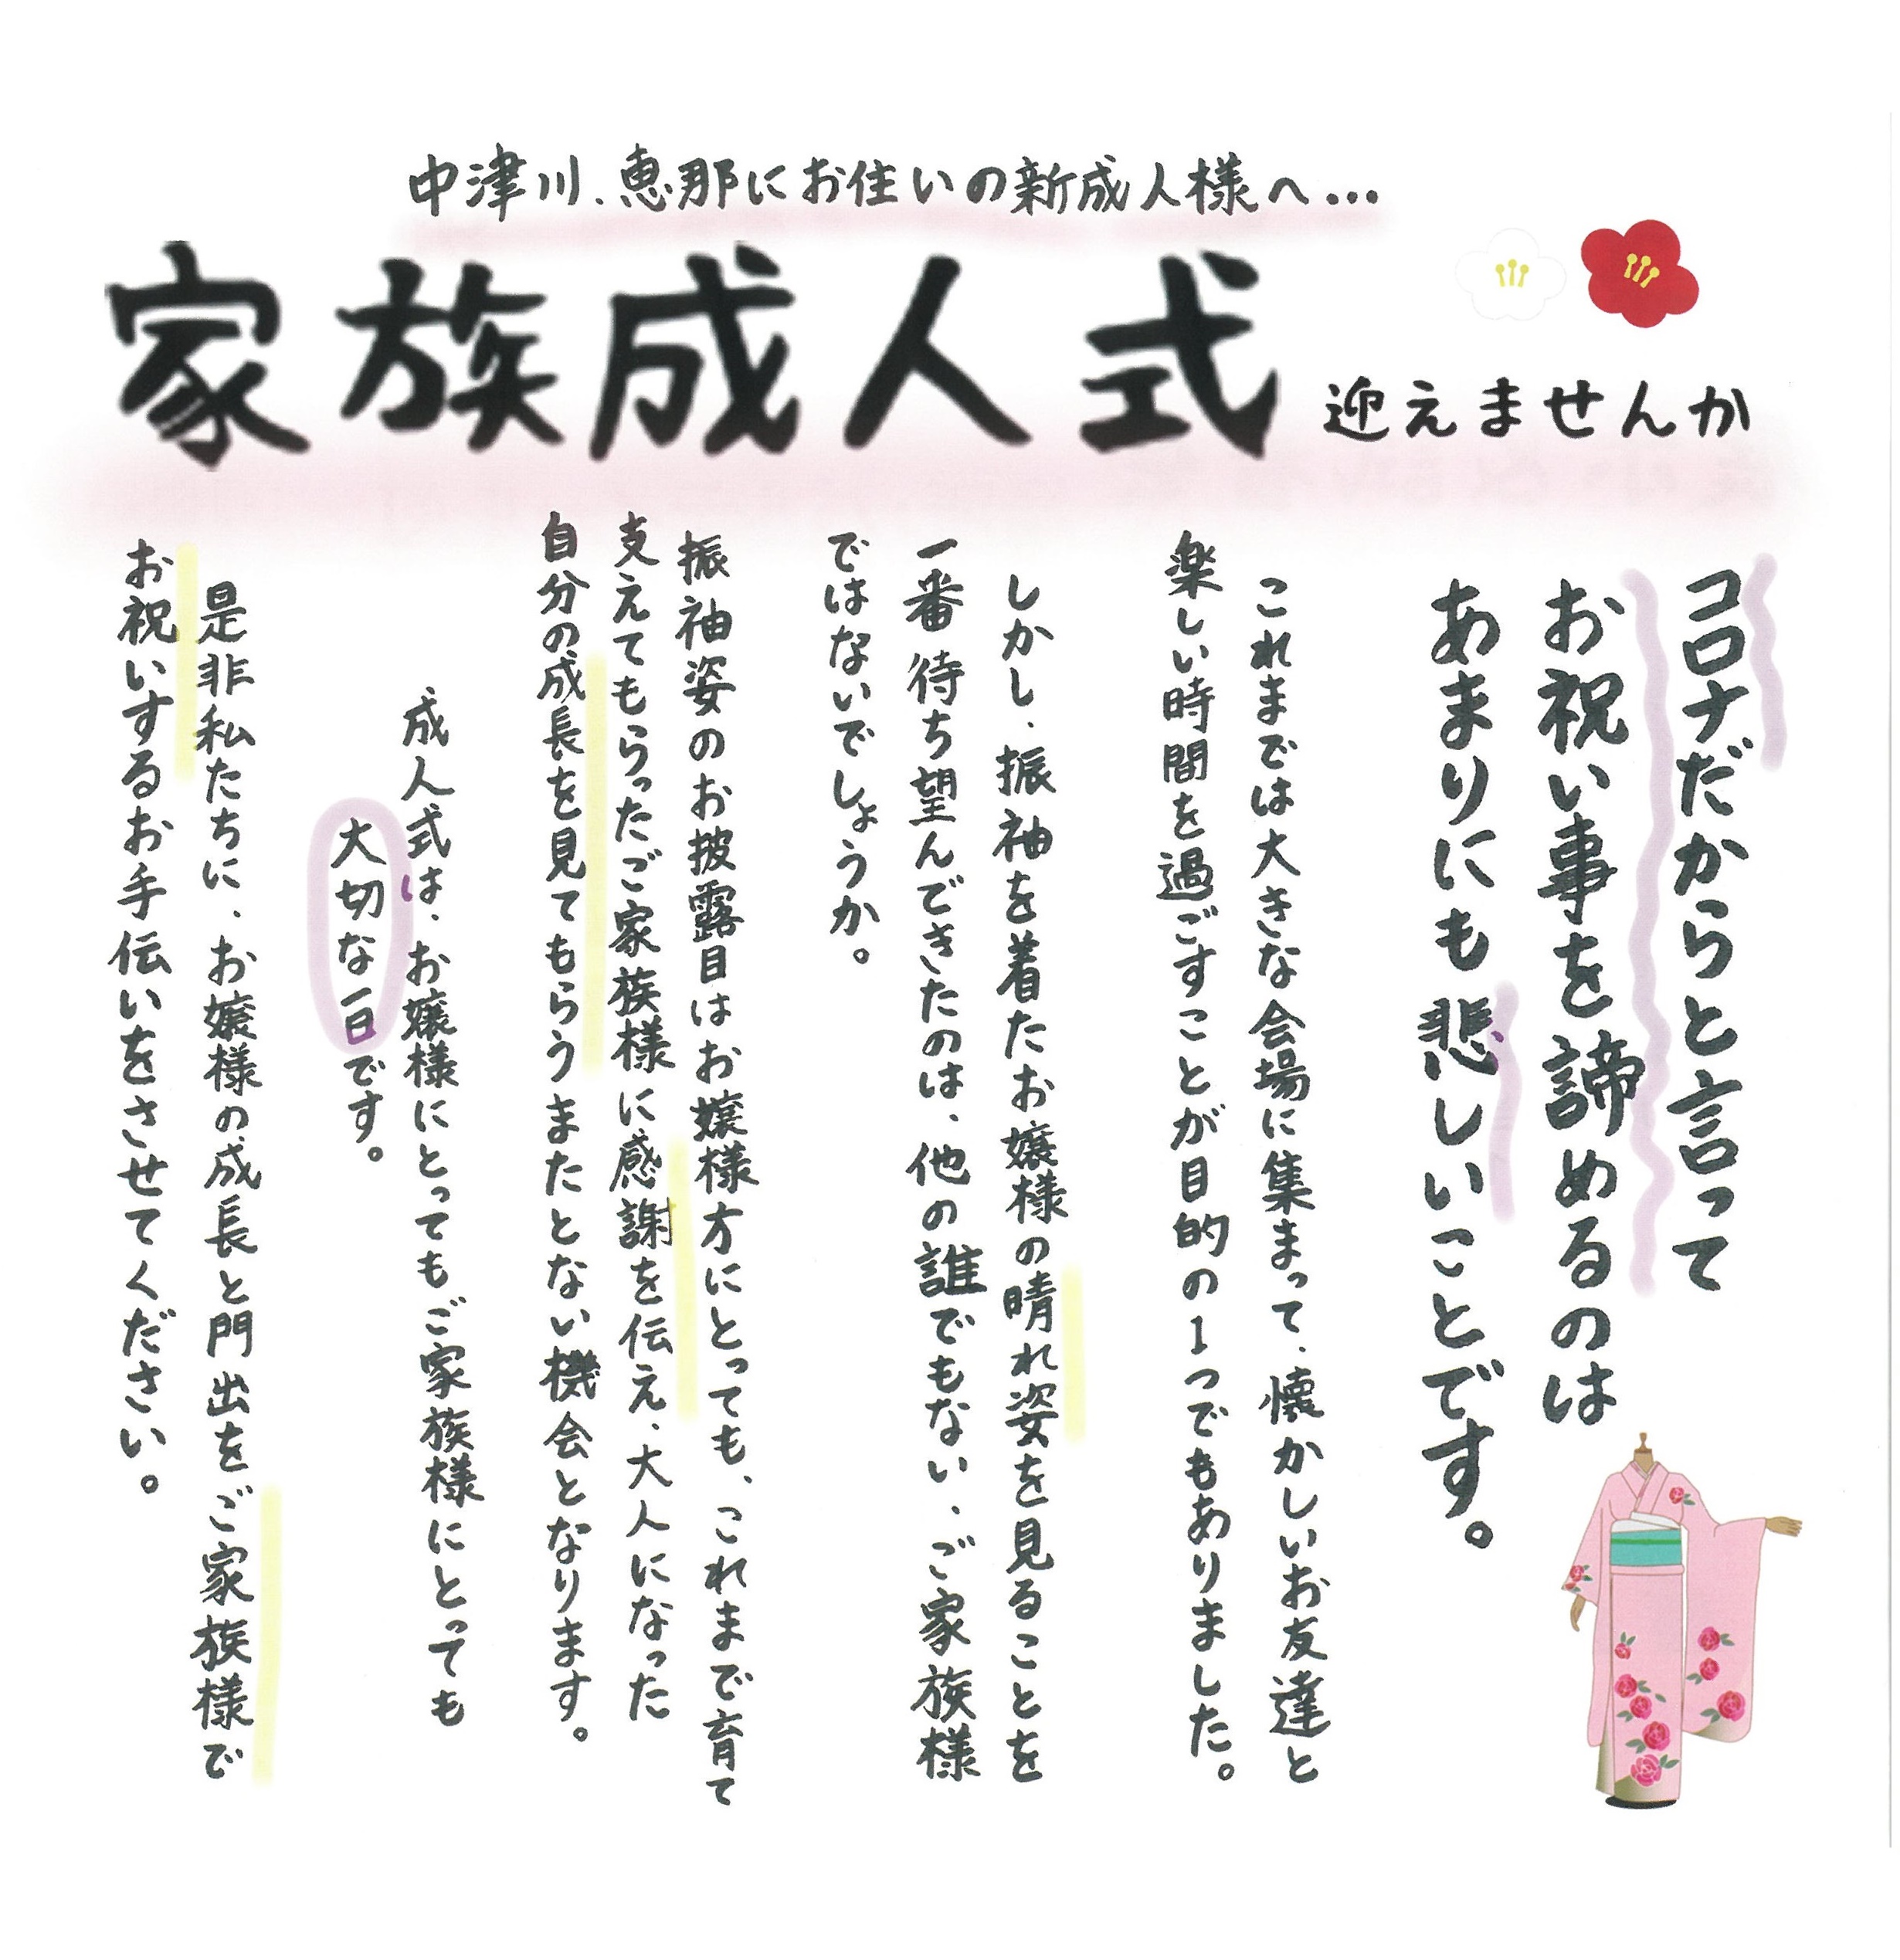 中津川、恵那にお住いの新成人様へ…
家族成人式 迎えませんか
コロナだからと言って
お祝い事を諦めるのは
あまりにも悲しいことです。
これまでは大きな会場に集まって、懐かしいお友達と
楽しい時間を過ごすことが目的の1つでもありました。
しかし、振袖を着たお嬢様の晴れ姿を見ることを
一番待ち望んできたのは、他の誰でもない、ご家族様
ではないでしょうか。
振袖姿のお披露目はお嬢様方にとっても、これまで育て
支えてもらったご家族様に感謝を伝え、大人になった
自分の成長を見てもらうまたとない機会となります。
成人式は、お嬢様にとってもご家族様にとっても
大切な一日です。
是非私たちに、お嬢様の成長と門出を、ご家族様で
お祝いするお手伝いをさせてください。